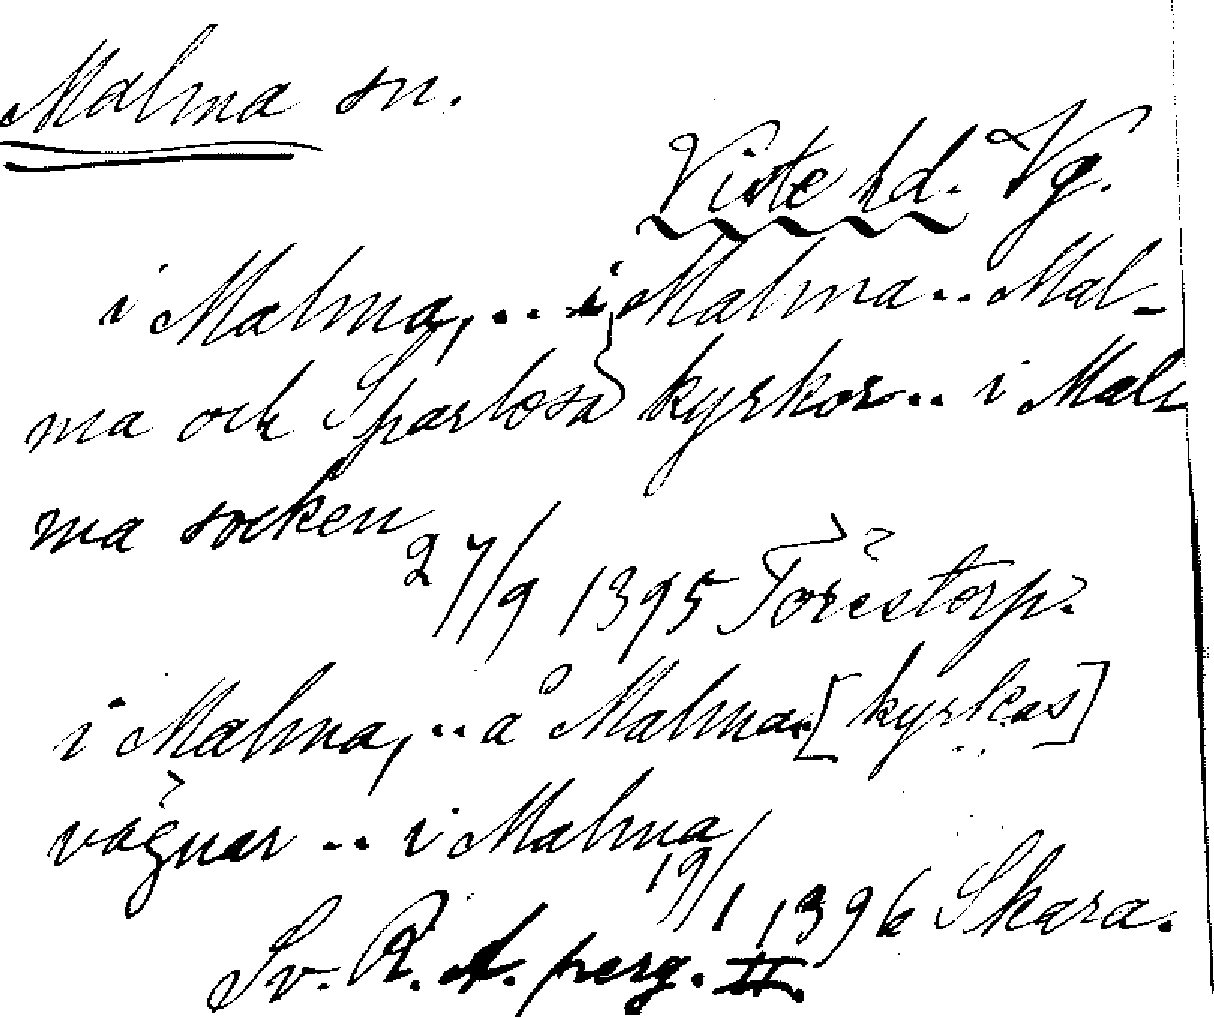 Malma sn.
Viste hd. Vg.
i Malma, .. i Malma .. Mal-
ma och Sparlosa kyrkor .. i Mal-
ma socken
27/9 1395 Torestorp.
i Malma, .. a Malma [kyrkas]
vägnar .. i Malma
19/1 1396 Skara.
Sv. R. A. perg. II.